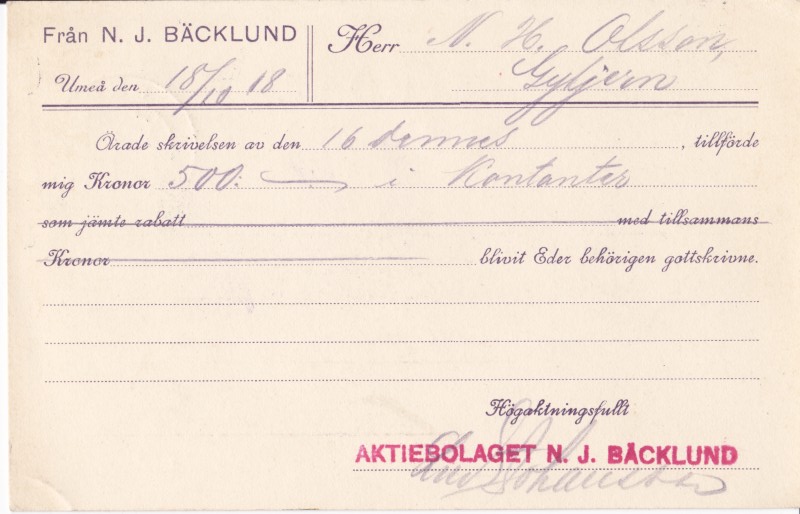 Från N. J. BÄCKLUND
Herr N. H. Olsson,
Gyljern
Umeå den 18/10 18
Ärade skrivelsen av den 16 dennes, tillförde
mig Kronor 500:— i Kontanter
som jämte rabatt med tillsammans
Kronor blivit Eder behörigen gottskrivne.
Högaktningsfullt
AKTIEBOLAGET N. J. BÄCKLUND
Johansson